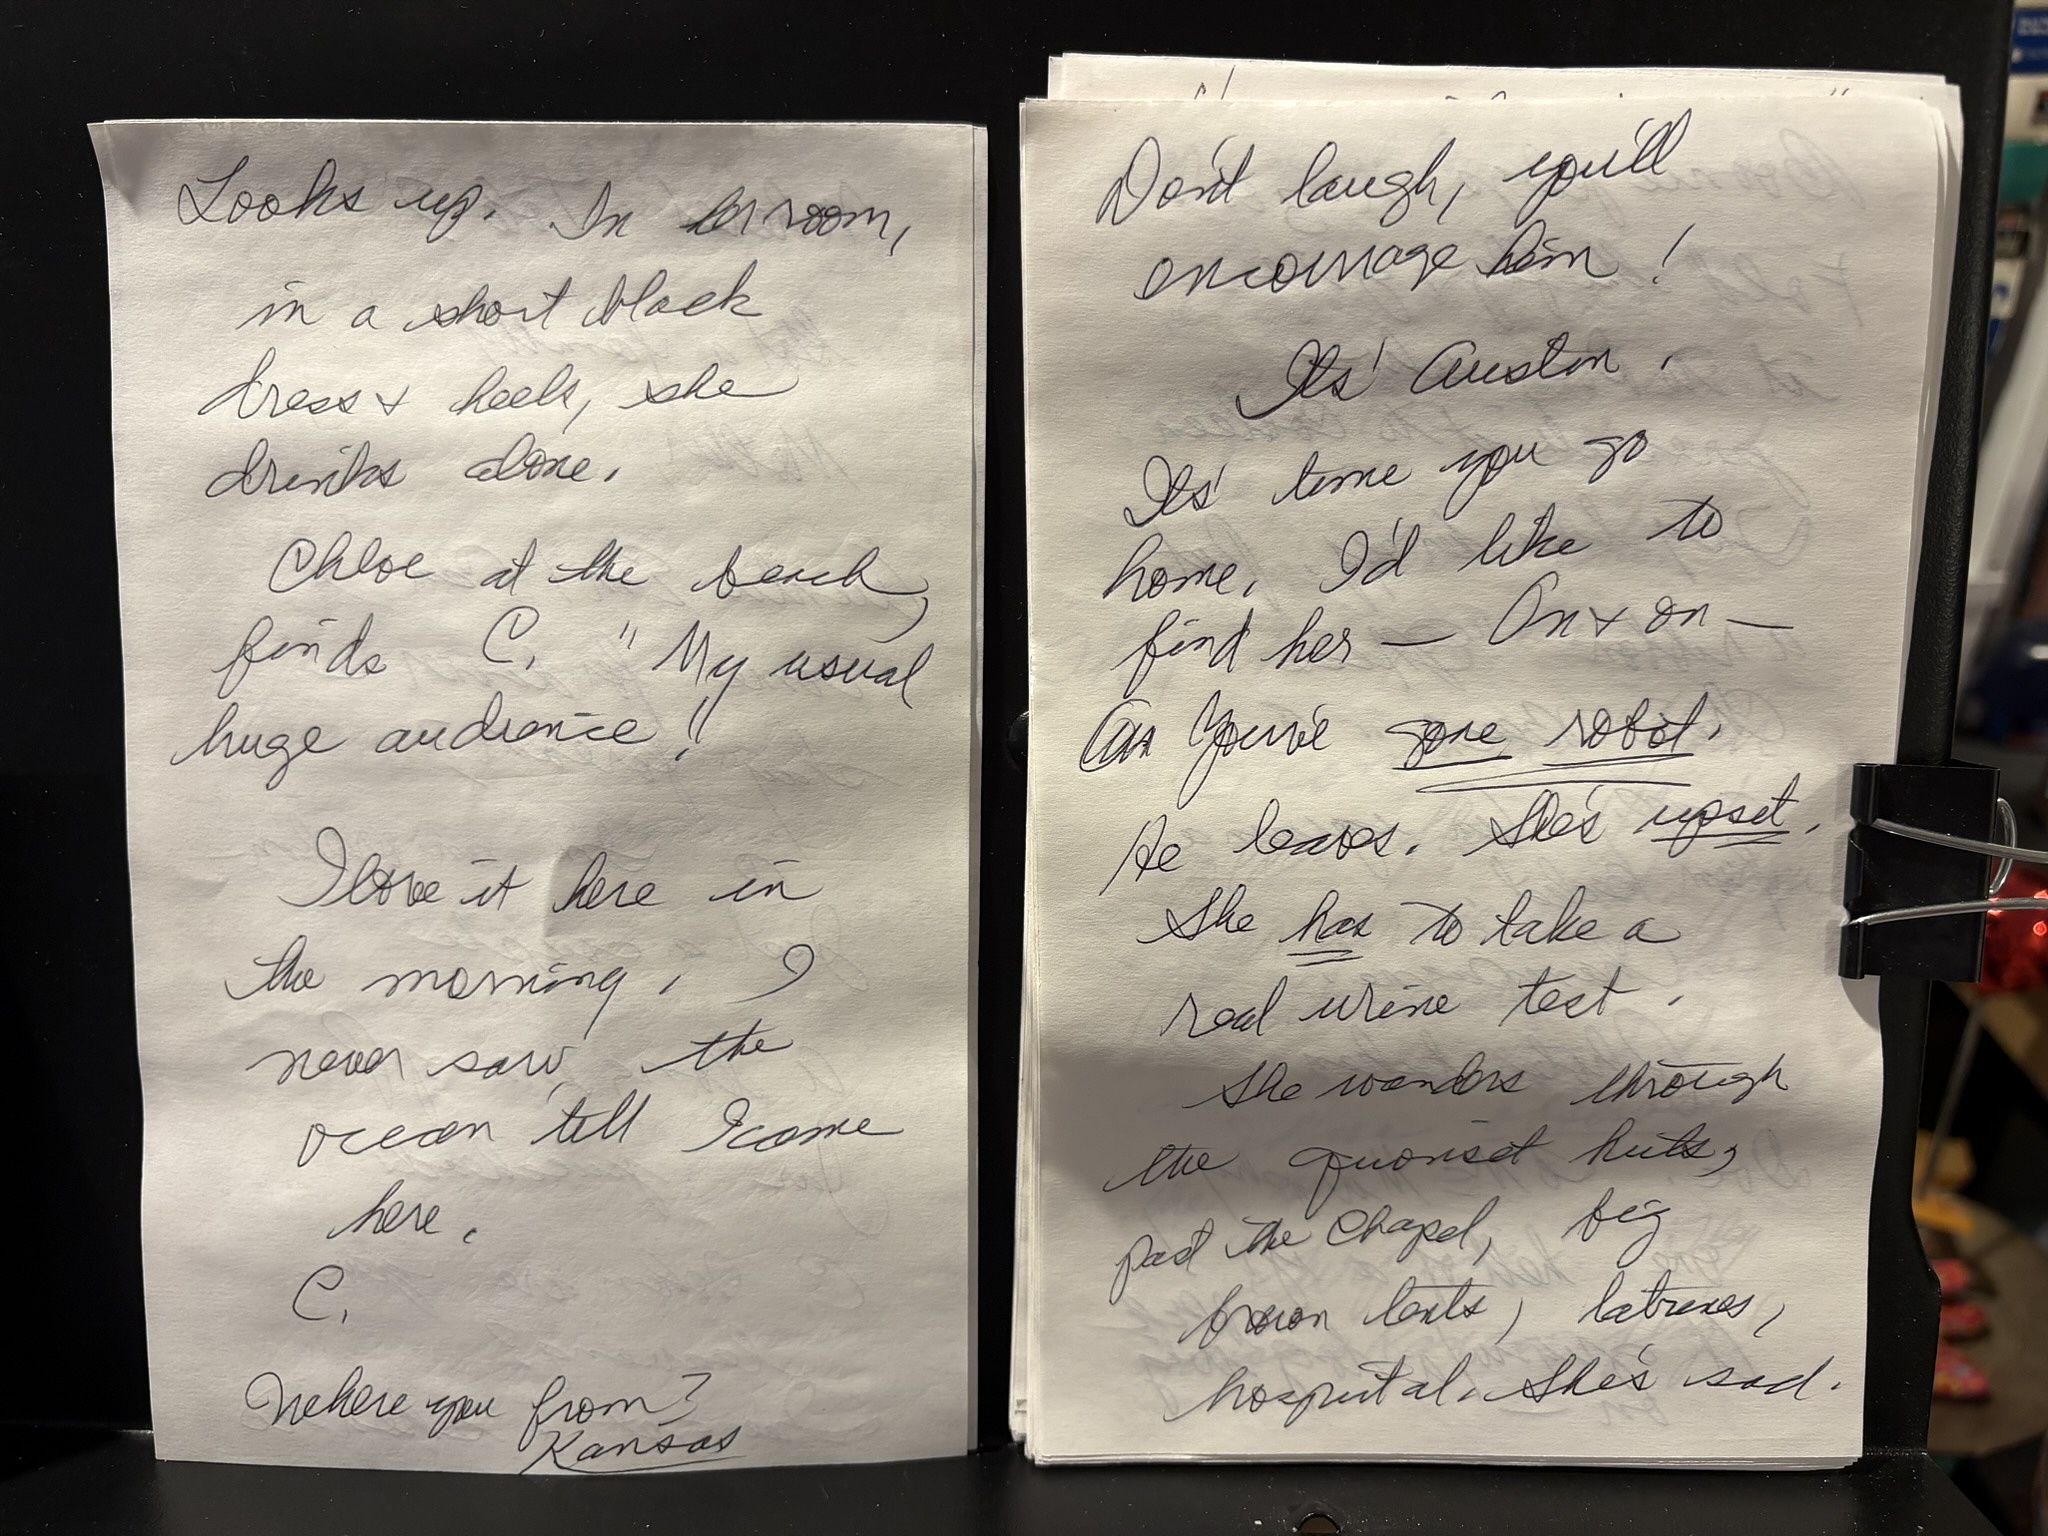 Looks up. In her room,
in a short black
dress & heels, she
drinks alone.
Chloe at the beach,
finds C. "My usual
huge audience!"
I love it here in
the morning. I
never saw the
ocean 'till I came
here.
C.
Where you from?
Kansas
Don't laugh, you'll
encourage him!
Its' Auston.
Its' time you go
home. I'd like to
find her — On & on —
You've gone robot.
He leaves. She's upset.
She has to take a
real urine test.
She wanders through
the quonset huts,
past the Chapel, big
brown tents, latrines,
hospital. She's sad.